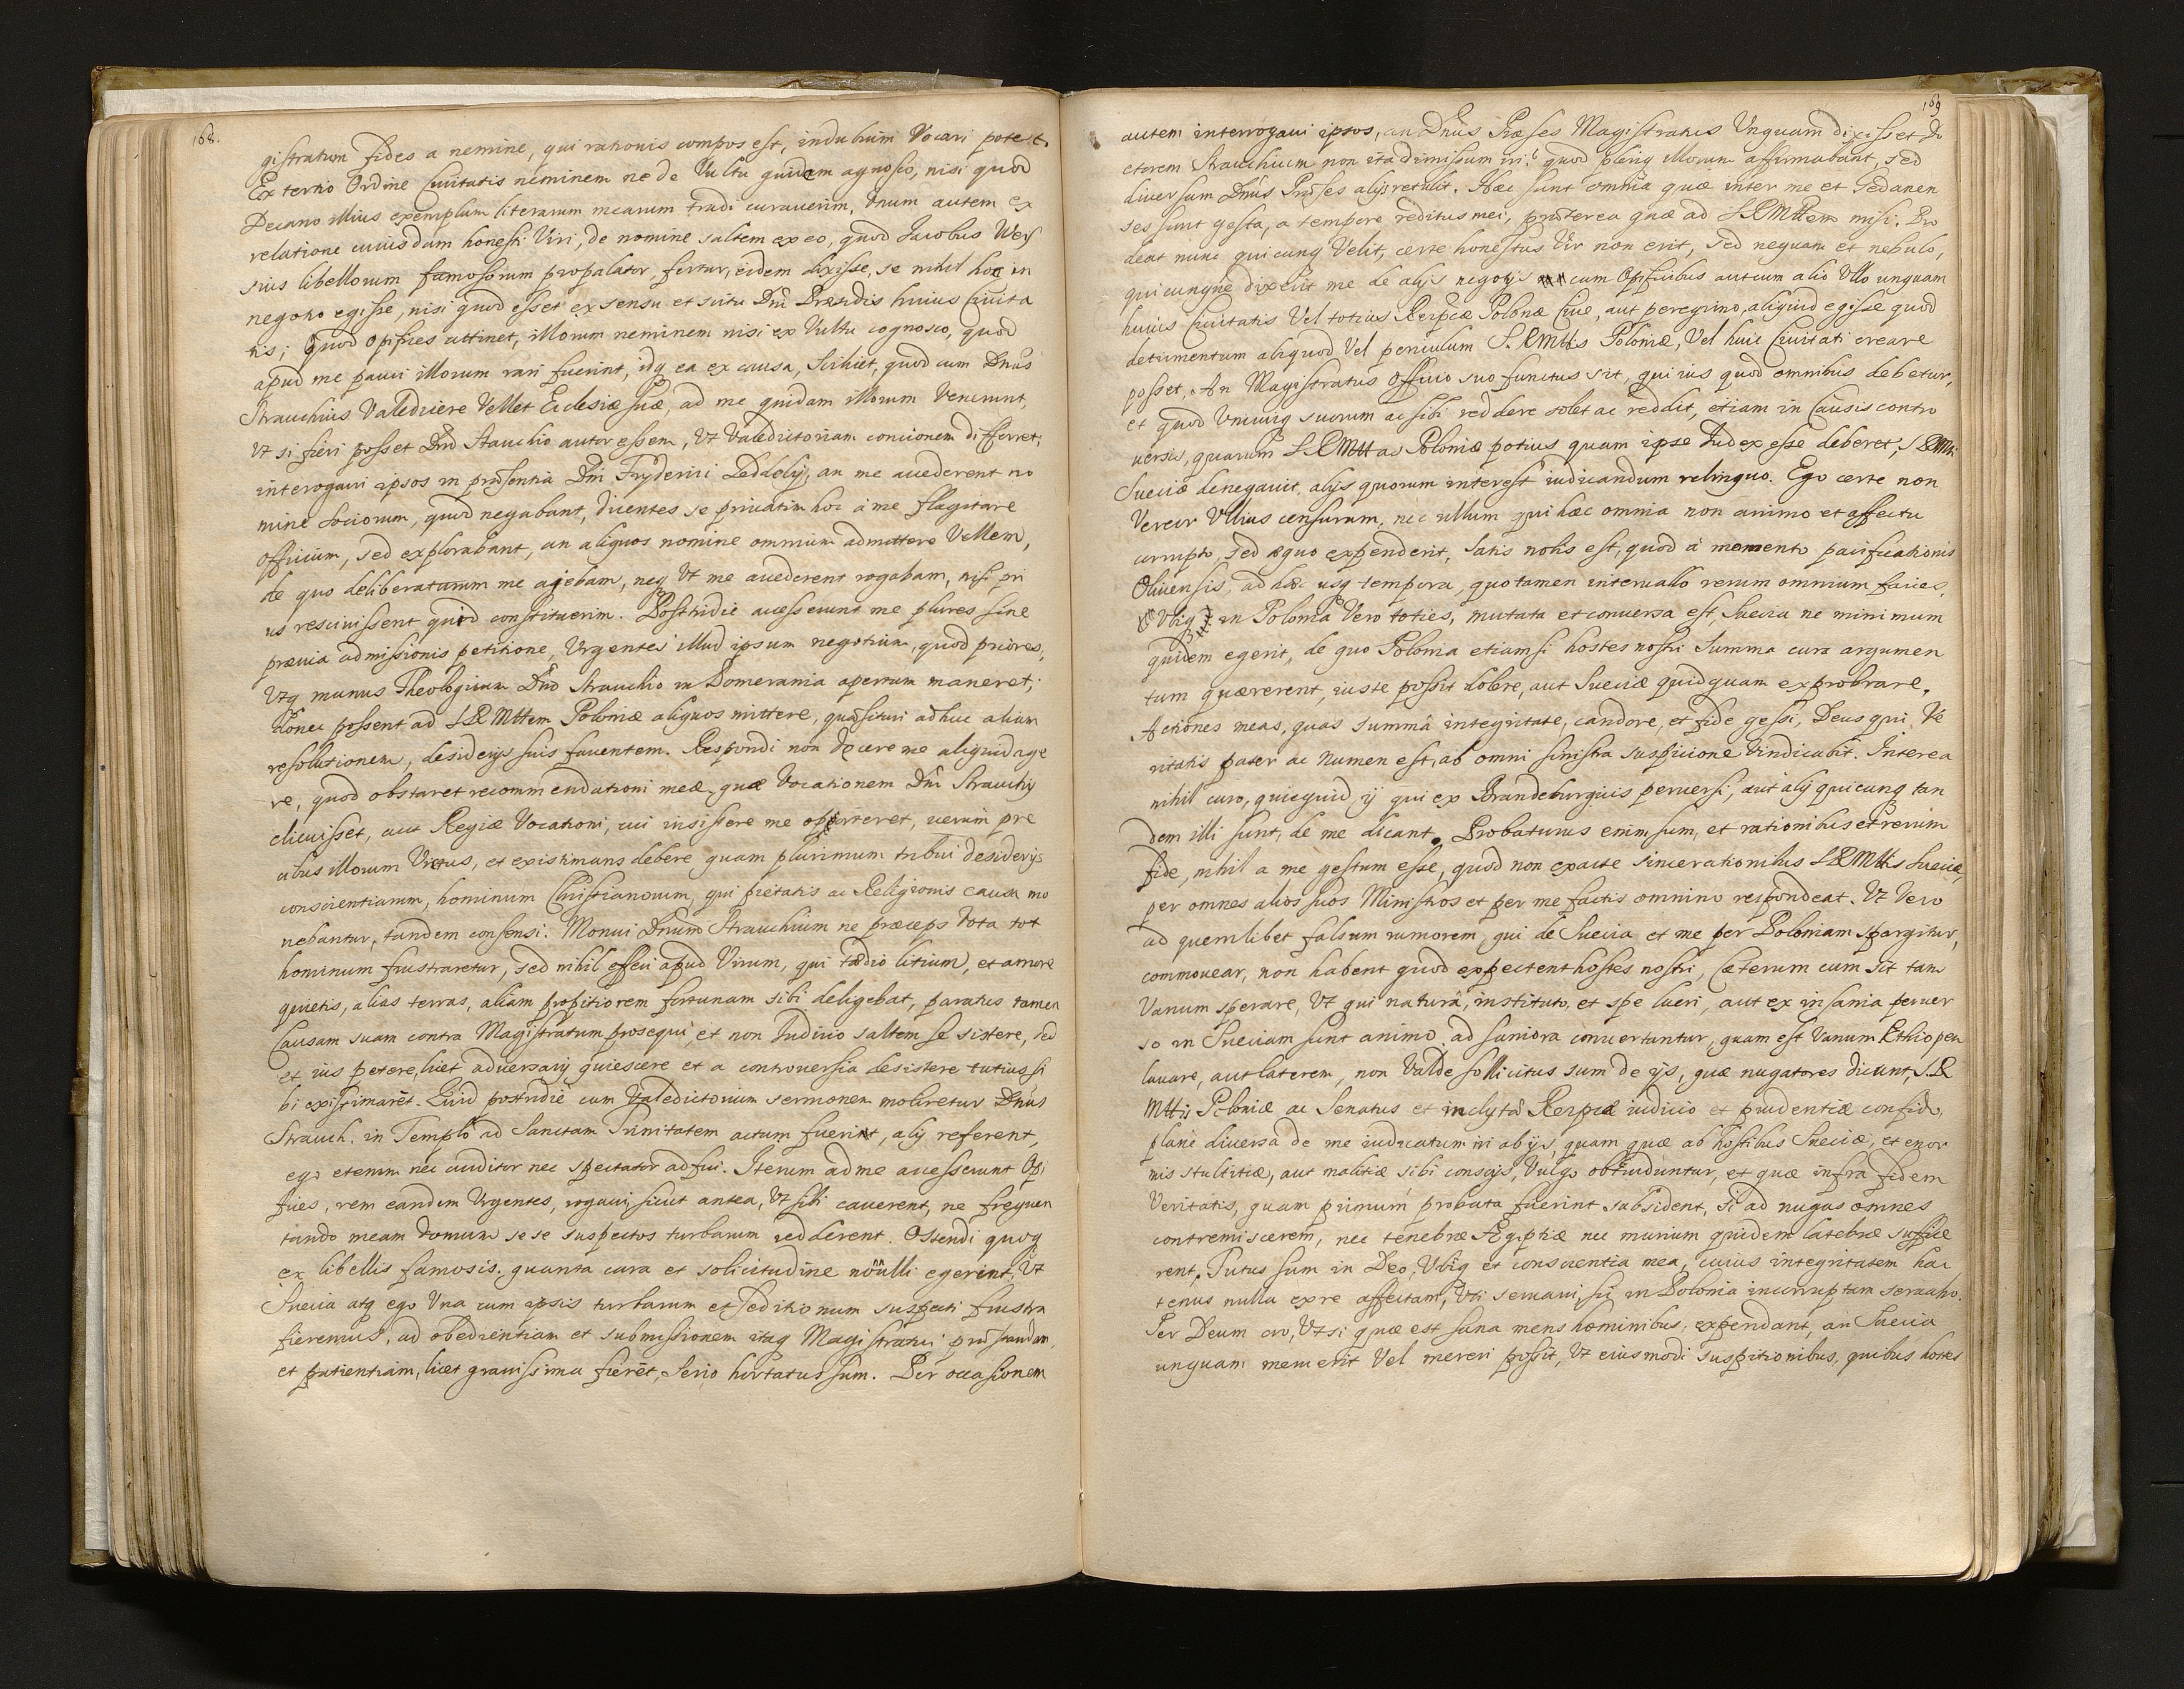 168.
gistratum fides a nemine, qui rationis compos est, in dubium Vocari potest.
Ex tertio Ordine Civitatis neminem ne de Vultu quidem agnosco, nisi quod
Decano illius exemplum literarum mearum tradi curaverim, Vnum autem ex
relatione cuiusdam honesti Viri, de nomine saltem ex eo, quod Iacobus Weis
sius libellorum famosorum propalator, fertur, eidem dixisse, se nihil hoc in
negotio egisse, nisi quod esset ex sensu et scitu Dni Præsidis huius Civita
tis; Quod Opifices attinet, illorum neminem nisi ex Vultu cognosco, quod
apud me pauci illorum rari fuerint, idq ea ex causa, Scilicet, quod cum Dnus
Strauchius Valedicere Vellet Ecclesiæ suæ, ad me quidam illorum Venerunt
Vt si fieri posset Dno Stauchio autor essem, Vt Valedictoriam concionem differret;
interogaui ipsos in præsentia Dni Fryderici Leddely, an me accederent no
mine sociorum, quod negabant, dicentes se privatim hoc á me flagitare
officium, sed explorabant, an aliquos nomine omnium admittere Vellem,
de quo deliberaturum me ajebam, neq Vt me accederent rogabam, nisi pri
us rescivissent quid constituerim. Postridie accesserunt me plures sine
prævia admissionis petitione, Vrgentes illud ipsum negotium, quod priores,
Vtq munus Theologicum Dno Strauchio in Pomerania apertum maneret;
donec possent ad SRMttem Poloniæ aliquos mittere, quæsituri adhuc alium
resolutionem, desiderijs suis faventem. Respondi non decere me aliquid age
re, quod obstaret recommendationi meæ, quæ Vocationem Dni Strauchij
elicuisset, aut Regiæ Vocationi, cui insistere me oporteret, verum pre
cibus illorum Victus, et existimans debere quam plurimum tribui desiderijs
conscientiarum, hominum Christianorum, qui pietatis ac Religionis causa mo
nebantur, tandem consensi. Monui Dnum Strauchium ne præceps Vota tot
hominum frustraretur, sed nihil effeci apud Virum, qui tædio litium, et amore
quietis, alias terras, aliam propitiorem fortunam sibi deligebat, paratus tamen
Causam suam contra Magistratum prosequi et non Iudicio saltem se sistere, sed
et ius petere, licet adversarij quiescere et a controversia desistere tutius si
bi existimarēt. Quid postridie cum Valedictorium sermonem moliretur Dnus
Strauch. in Templo ad Sanctam Trinitatem actum fuerit, alij referent,
ego etenim nec auditor nec spectator adfui. Iterum ad me accesserunt Opi
fices, rem eandem Vrgentes, rogavi sicut antea, Vt sibi caverent, ne frequen
tando meam domum sese suspectos turbarum redderent. Ostendi quoq
ex libellis famosis, quanta cura et solicitudine nonnulli egerint, Vt
Suecia atq ego Vna cum ipsis turbarum et seditionum suspecti frustra
fieremus, ad obedientiam et submissionem itaq Magistratui præstandam,
et patientiam, licet gravissima fierēt, serio hortatus sum. Per occasionem
169
autem interrogaui ipsos, an Dnus Præses Magistratus Vnquam dixisset Do
ctorem Strauchium non ita dimissum iri? quod pleriq illorum affirmabant, sed
diversum Dnus Præses alijs retulit. Hæc sunt omnia quæ inter me et Gedanen
ses sunt gesta, a tempore reditus mei, præterea quæ ad SRMttem misi. Pro
deat nunc quicunq Velit, certe honestus Vir non erit, sed nequam et nebulo,
quicunque dixerit me de alijs negotijs cum Opificibus aut cum alio Vllo unquam
huius Civitatis Vel totius Reipcæ Polonæ Cive, aut peregrino, aliquid egisse quod
detrimentum aliquod Vel periculum S.RMttis Poloniæ, Vel huic Civitati creare
posset, An Magistratus Officio suo functus sit, qui ius quod omnibus debetur,
et quod Vnicuiq suorum ac sibi reddere solet ac reddit, etiam in Causis contro
versis, quarum SRMttas Poloniæ potius quam ipse Iudex esse deberet, SRMti
Sueciæ denegavit, alijs quorum interest iudicandum relinquo. Ego certe non
Vereor Vllius censuram, nec ullum qui hæc omnia non animo et affectu
corrupto, sed æquo expenderit, satis notis est, quod á momento pacificationis
Olivensis, ad hæc usq tempora, quo tamen intervallo rerum omnium facies,
Vbiq in Polonia Vero toties, mutata et conversa est, Suecia ne minimum
quidem egerit, de quo Polonia etiamsi hostes nostri Summa cura argumen
tum quærerent, iuste possit dolere, aut Sueciæ quidquam exprobrare.
Actiones meas, quas summâ integritate, candore, et fide gessi, Deus qui Ve
ritatis pater ac Numen est, ab omni sinistra suspicione Vindicabit. Interea
nihil curo, quicquid ij qui ex Brandeburgicis perversi, aut alij quicunq tan
dem illi sunt, de me dicant. Probaturus enim sum, et rationibus et rerum
fide, nihil a me gestum esse, quod non exacte sincerationibus SRMttis Sueciæ,
per omnes alios suos Ministros et per me factis omnino respondeat. Vt Vero
ad quemlibet falsum rumorem, qui de Suecia et me per Poloniam spargitur,
commovear, non habent quod expectent hostes nostri, Cæterum cum sit tam
Vanum sperare, Vt qui naturâ, instituto, et spe lucri, aut ex insania perver
so in Sueciam sunt animo, ad saniora convertantur, quam est Vanum Æthiopem
lavare, aut laterem, non Valde sollicitus sum de ijs, quæ nugatores dicunt, S.R
Mttis Poloniæ ac Senatus et inclytæ Reipcæ iudicio et prudentiæ confido,
planè diversa de me iudicatum iri ab ijs, quam quæ ab hostibus Sueciæ, et enor
mis stultitiæ, aut malitiæ sibi conscijs, Vulgo obtruduntur, et quæ infra fidem
Veritatis, quam primum probata fuerint subsident, Si ad nugas omnes
contremiscerem, nec tenebræ Ægiptiæ nec murium quidem latebræ suffice
rent, Tutus sum in Deo, Vbiq et conscientia mea, cuius integritatem hac
tenus nulla ex re affectam, Vti servavi, sic in Polonia incorruptam servabo.
Per Deum oro, Vt si quæ est sana mens hominibus, expendant, an Suecia
unquam meruerit Vel mereri possit, Vt eiusmodi suspitionibus, quibus hostes